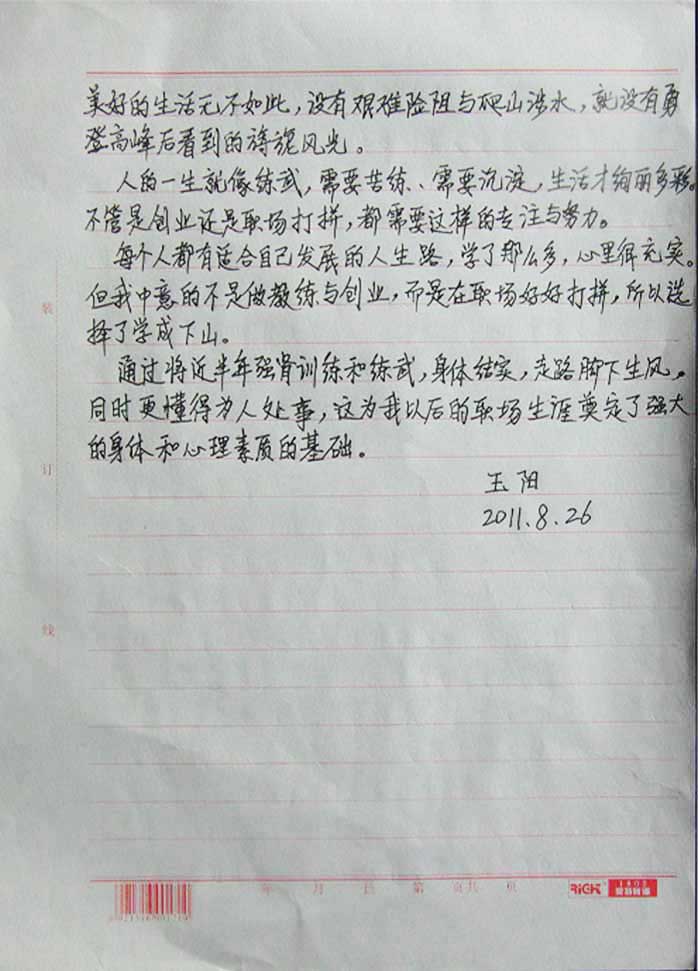 美好的生活无不如此，没有艰难险阻与爬山涉水，就没有勇
登高峰后看到的旖旎风光。
人的一生就像练武，需要苦练、需要沉淀，生活才绚丽多彩
不管是创业还是职场打拼，都需要这样的专注与努力。
每个人都有适合自己发展的人生路，学了那么多，心里很充实。
但我中意的不是做教练与创业，而是在职场好好打拼，所以选
择了学成下山。
通过将近半年强肾训练和练武，身体结实，走路脚下生风。
同时更懂得为人处事，这为我以后的职场生涯奠定了强大
的身体和心理素质的基础。
玉阳
2011.8.26
装
订
线
年 月 日 第 页共 页
RiCH